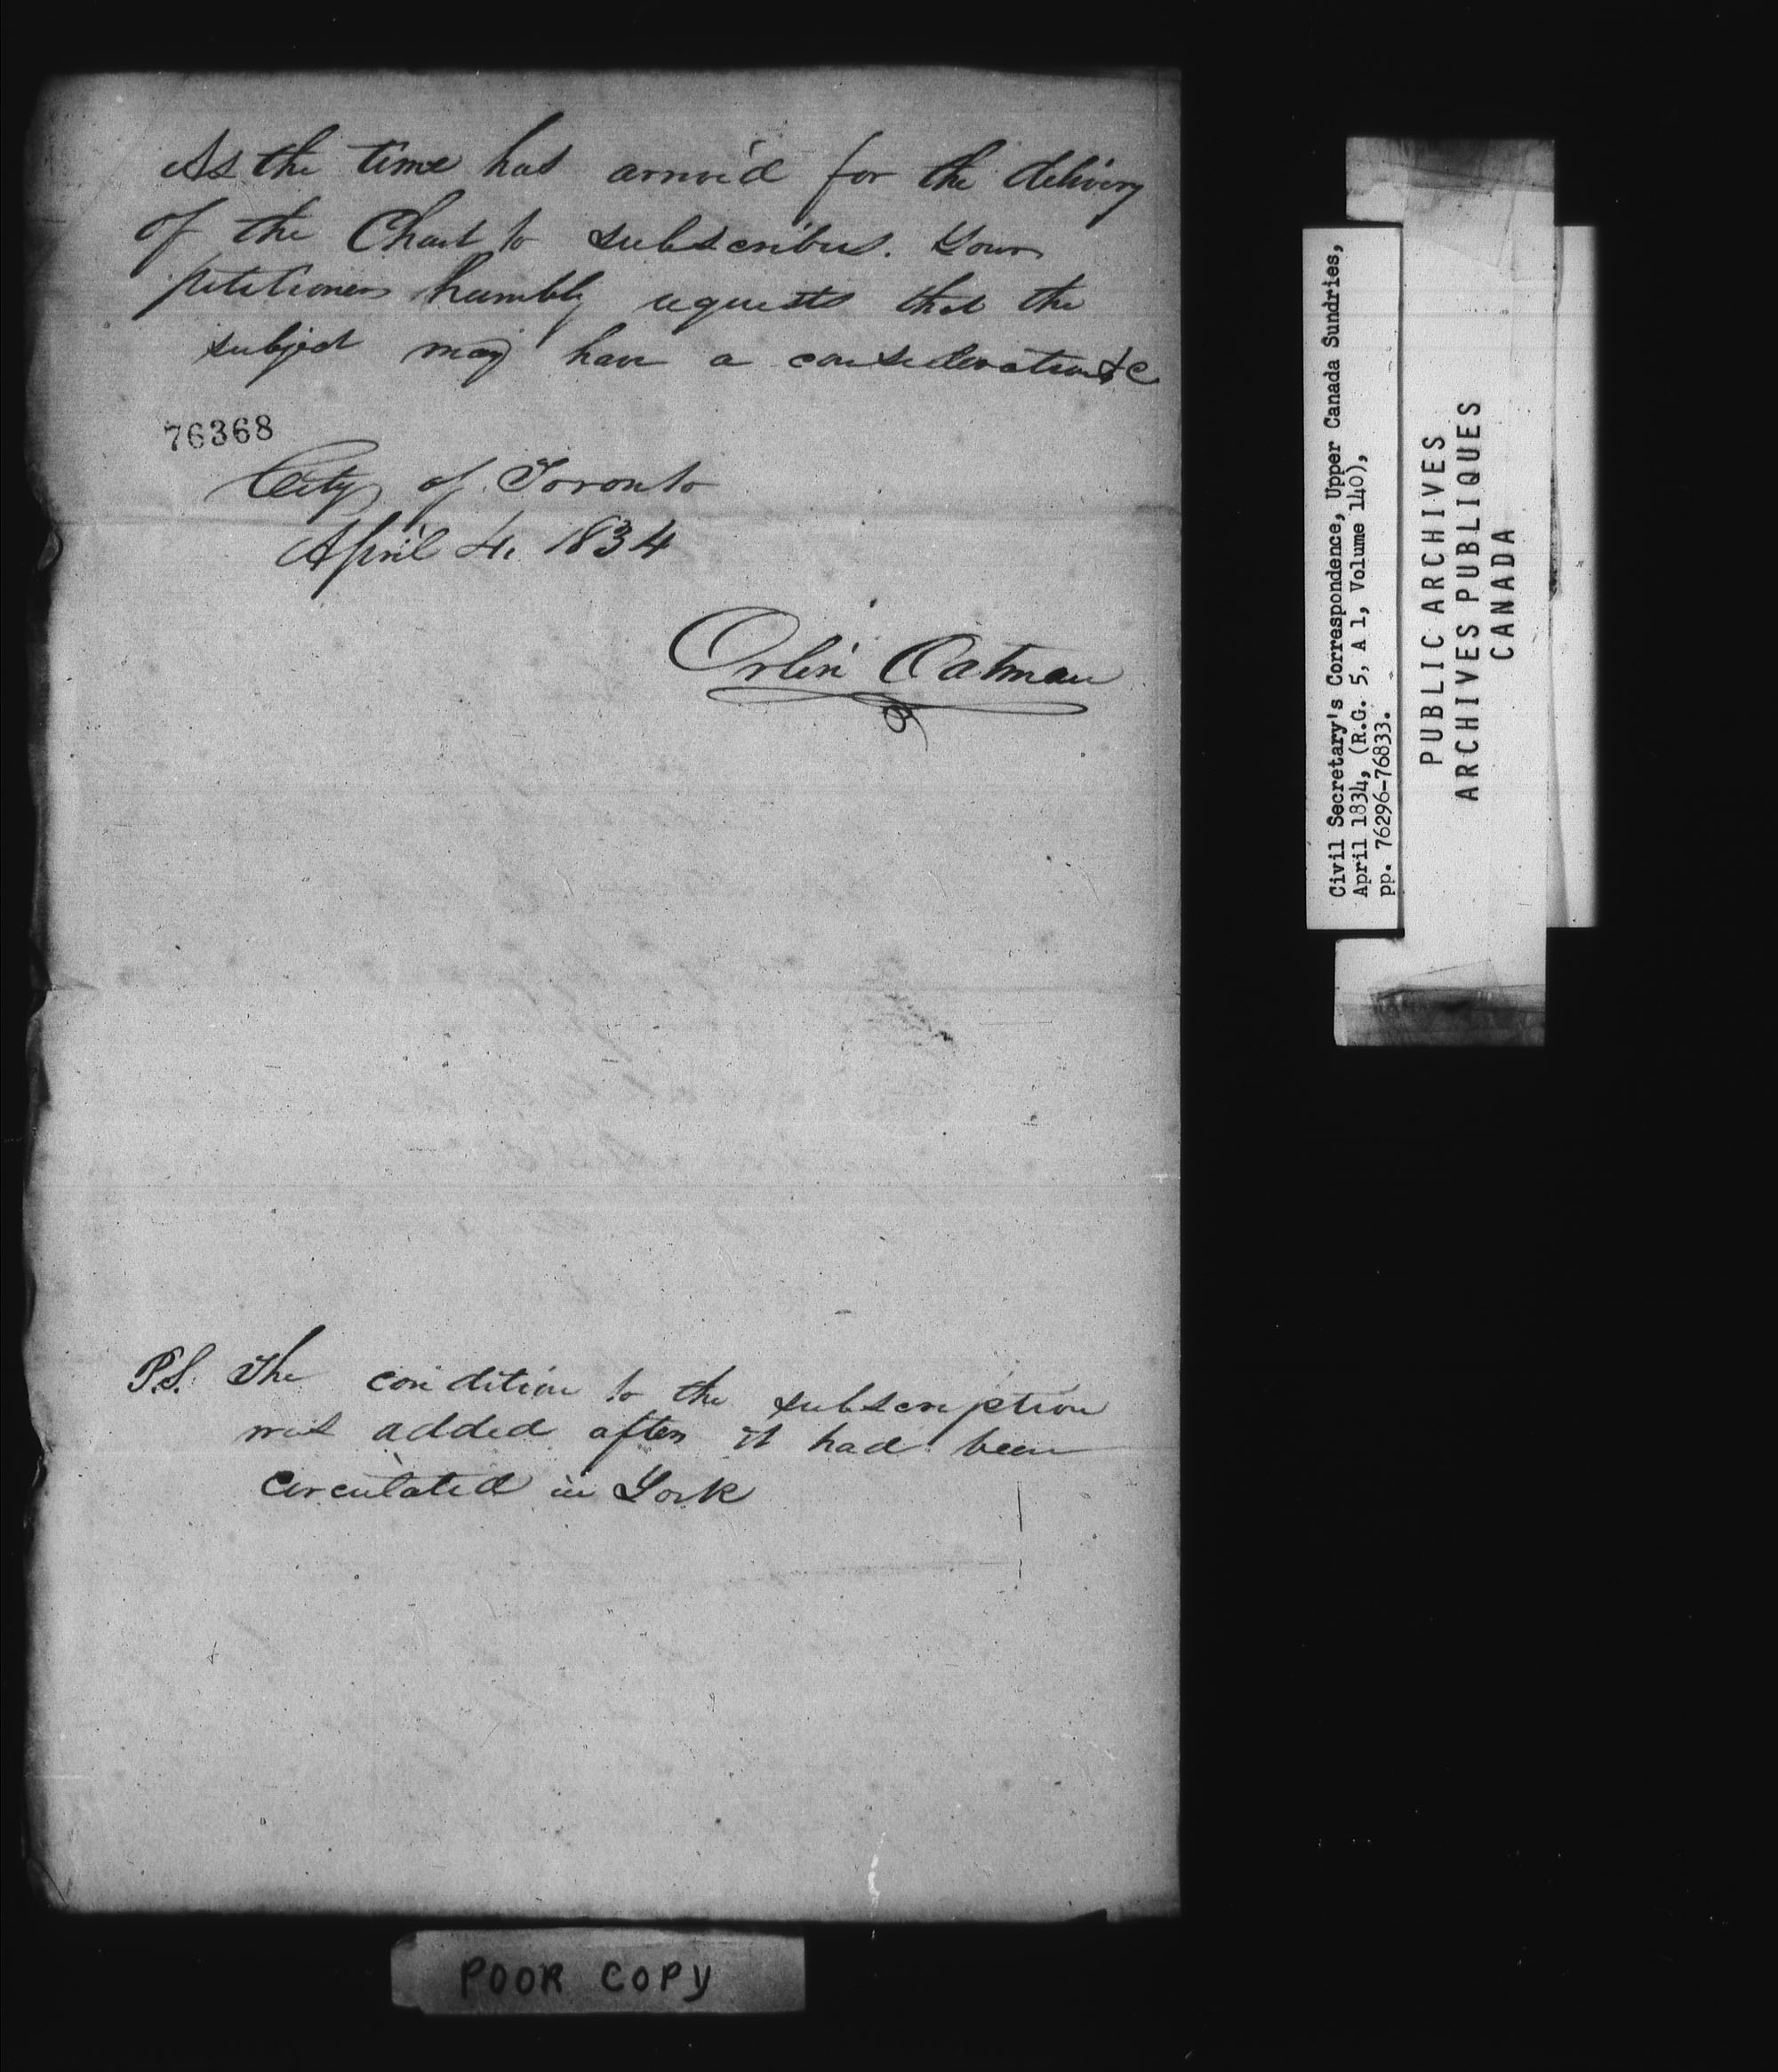 As the time has arriv'd for the delivery
of the Chart to subscribers. Your
petitioner humbly requests that the
subject may have a consideration &c
76368
City of Toronto
April 4. 1834
Orlin Oatman
P.S. The condition to the subscription
was added after it had been
circulated in York
POOR COPY
Civil Secretary's Correspondence, Upper Canada Sundries,
April 1834, (R.G. 5, A 1, Volume 140),
pp. 76296-76833.
PUBLIC ARCHIVES
ARCHIVES PUBLIQUES
CANADA